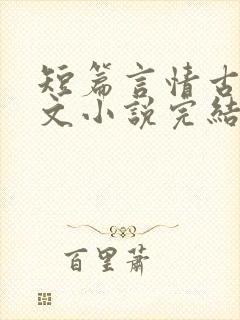 短篇言情古
文小説完結
百里蕭